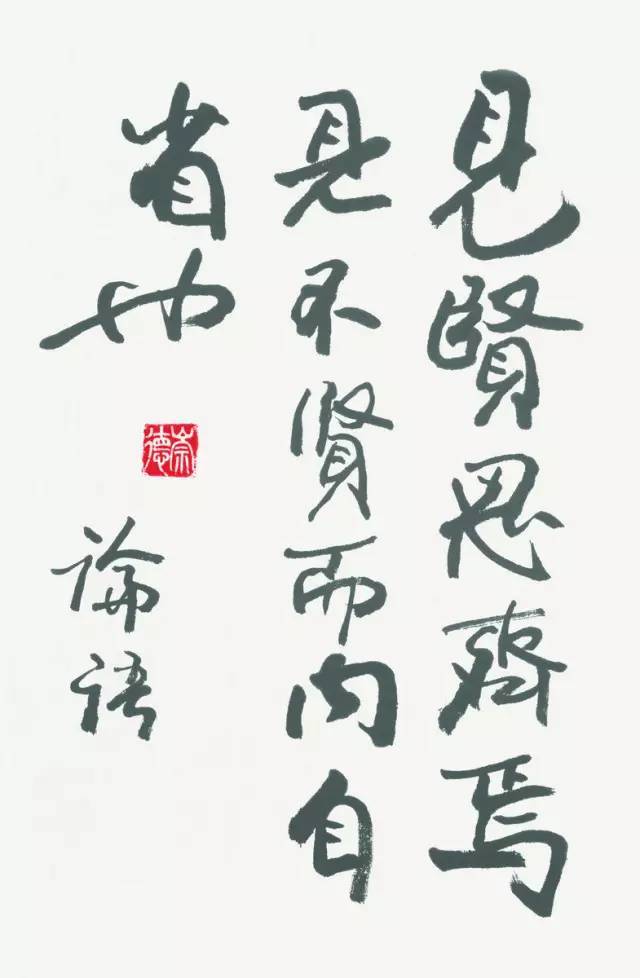 見賢思齊焉
見不賢而內自
省也
崇德
論語